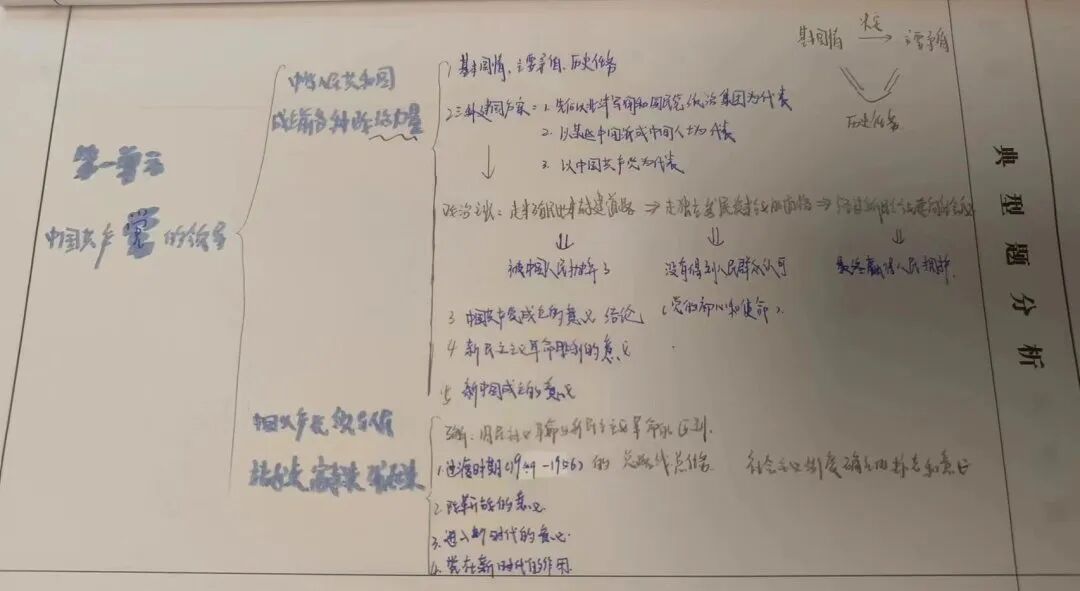 基本国情 决定 主要矛盾
历史任务
典型题分析
第一单元
中国共产党的领导
中华人民共和国
成立前各种政治力量
1 基本国情、主要矛盾、历史任务
2 三种建国方案：1. 先后以北洋军阀和国民党统治集团为代表
2. 以某些中国派或中间人士为代表
3. 以中国共产党为代表
政治主张：走半殖民地半封建道路 ⇒ 走独立发展 ⇒
被中国人民抛弃了 没有得到人民群众认可 最终赢得人民拥护.
3 中国共产党成立的意义 结论 (党的初心和使命).
4 新民主主义革命胜利的意义
5 新中国成立的意义
中国共产党领导人民
站起来 富起来 强起来
旧民主主义革命与新民主主义革命的区别.
1. 过渡时期(1949-1956)的总路线总任务 社会主义制度确立的 和意义
2. 改革开放的意义.
3. 进入新时代的意义.
4. 党在新时代的作用.